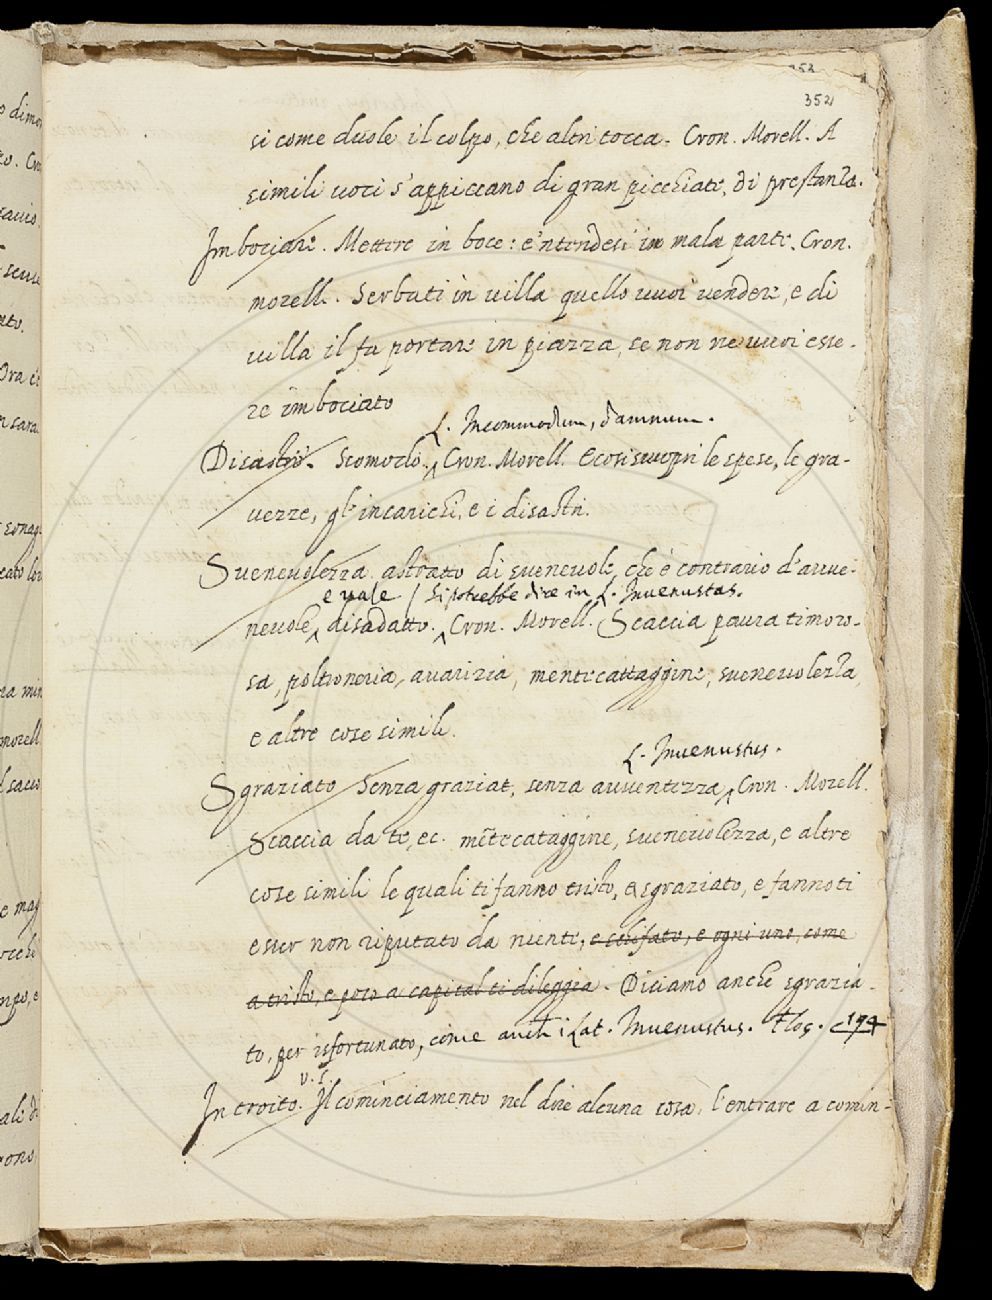 352
352
si come duole il colpo, che altri tocca. Cron. Morell. A
simili uoci s'appiccano di gran picchiate, di prestanza.
Imbociare. Mettere in boce: e'ntendesi in mala parte. Cron.
morell. Serbati in uilla quello uuoi vendere, e di
uilla il fa portare in piazza, se non ne uuoi esse-
re imbociato
L. Incommodum, damnum.
Disastro. Scomodo. Cron. Morell. Ecosi scuopri le spese, le gra-
uezze, gl'incarichi, e i disastri.
Sueneuolezza astratto di sueneuole, che è contrario d'auue-
e uale / si potrebbe dire in L. Inuenustas.
neuole, disadatto. Cron. Morell. Scaccia paura timoro-
sa, poltroneria, auarizia, mentecattaggine, sueneuolezza,
e altre cose simili.
L. Inuenustus.
Sgraziato Senza graziat, senza auuentezza, Cron. Morell.
Scaccia da te, ec. mẽtecataggine, sueneuolezza, e altre
cose simili le quali ti fanno tristo, e sgraziato, e fannoti
esser non riputato da niente, e schifato, e ogni uno, come
a tristo, e poco a capital ti dileggia. Diciamo anche sgrazia-
to, per isfortunato, come anch i Lat. Inuenustus. Flos. c 174
v. s.
Introito. Il cominciamento nel dire alcuna cosa, l'entrare a comin-